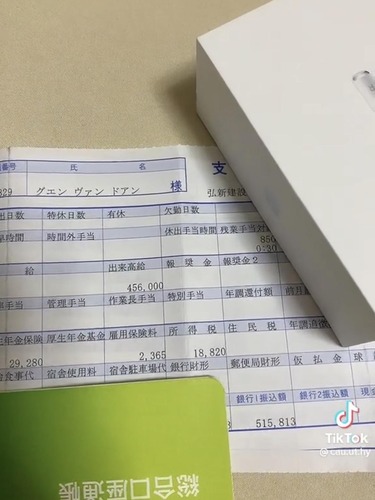 番号 氏 名 支
829 グエン ヴァン ドアン 様 弘新建設
出日数 特休日数 有休 欠勤日数
時間 時間外手当 休出手当時間 残業手当対
850
0:30
給 出来高給 報奨金 報奨金2
456,000
手当 管理手当 作業長手当 特別手当 年調還付額 前月
年金保険 厚生年金基金 雇用保険料 所得税 住民税 年調過
29,280 2,365 18,820
食事代 宿舎使用料 宿舎駐車場代 銀行財形 郵便局財形 仮払金 球
銀行1振込額 銀行2振込額 現金
515,813
総合口座通帳
TikTok
@ cau.ut.hy